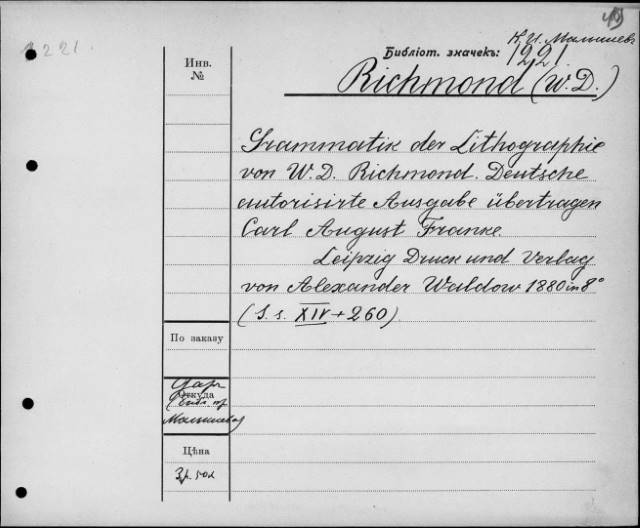 1221.
К. И. Малышевъ
Библіот. значекъ:
1221
Richmond (W. D.)
Инв.
№
Grammatik der Lithographie
von W. D. Richmond. Deutsche
autorisirte Ausgabe übertragen
Carl August Franke.
Leipzig Druck und Verlag
von Alexander Waldow 1880 in 8°
(S. s. XIV + 260).
По заказу
Даръ
Откуда
Малышева
Цѣна
3р. 50к